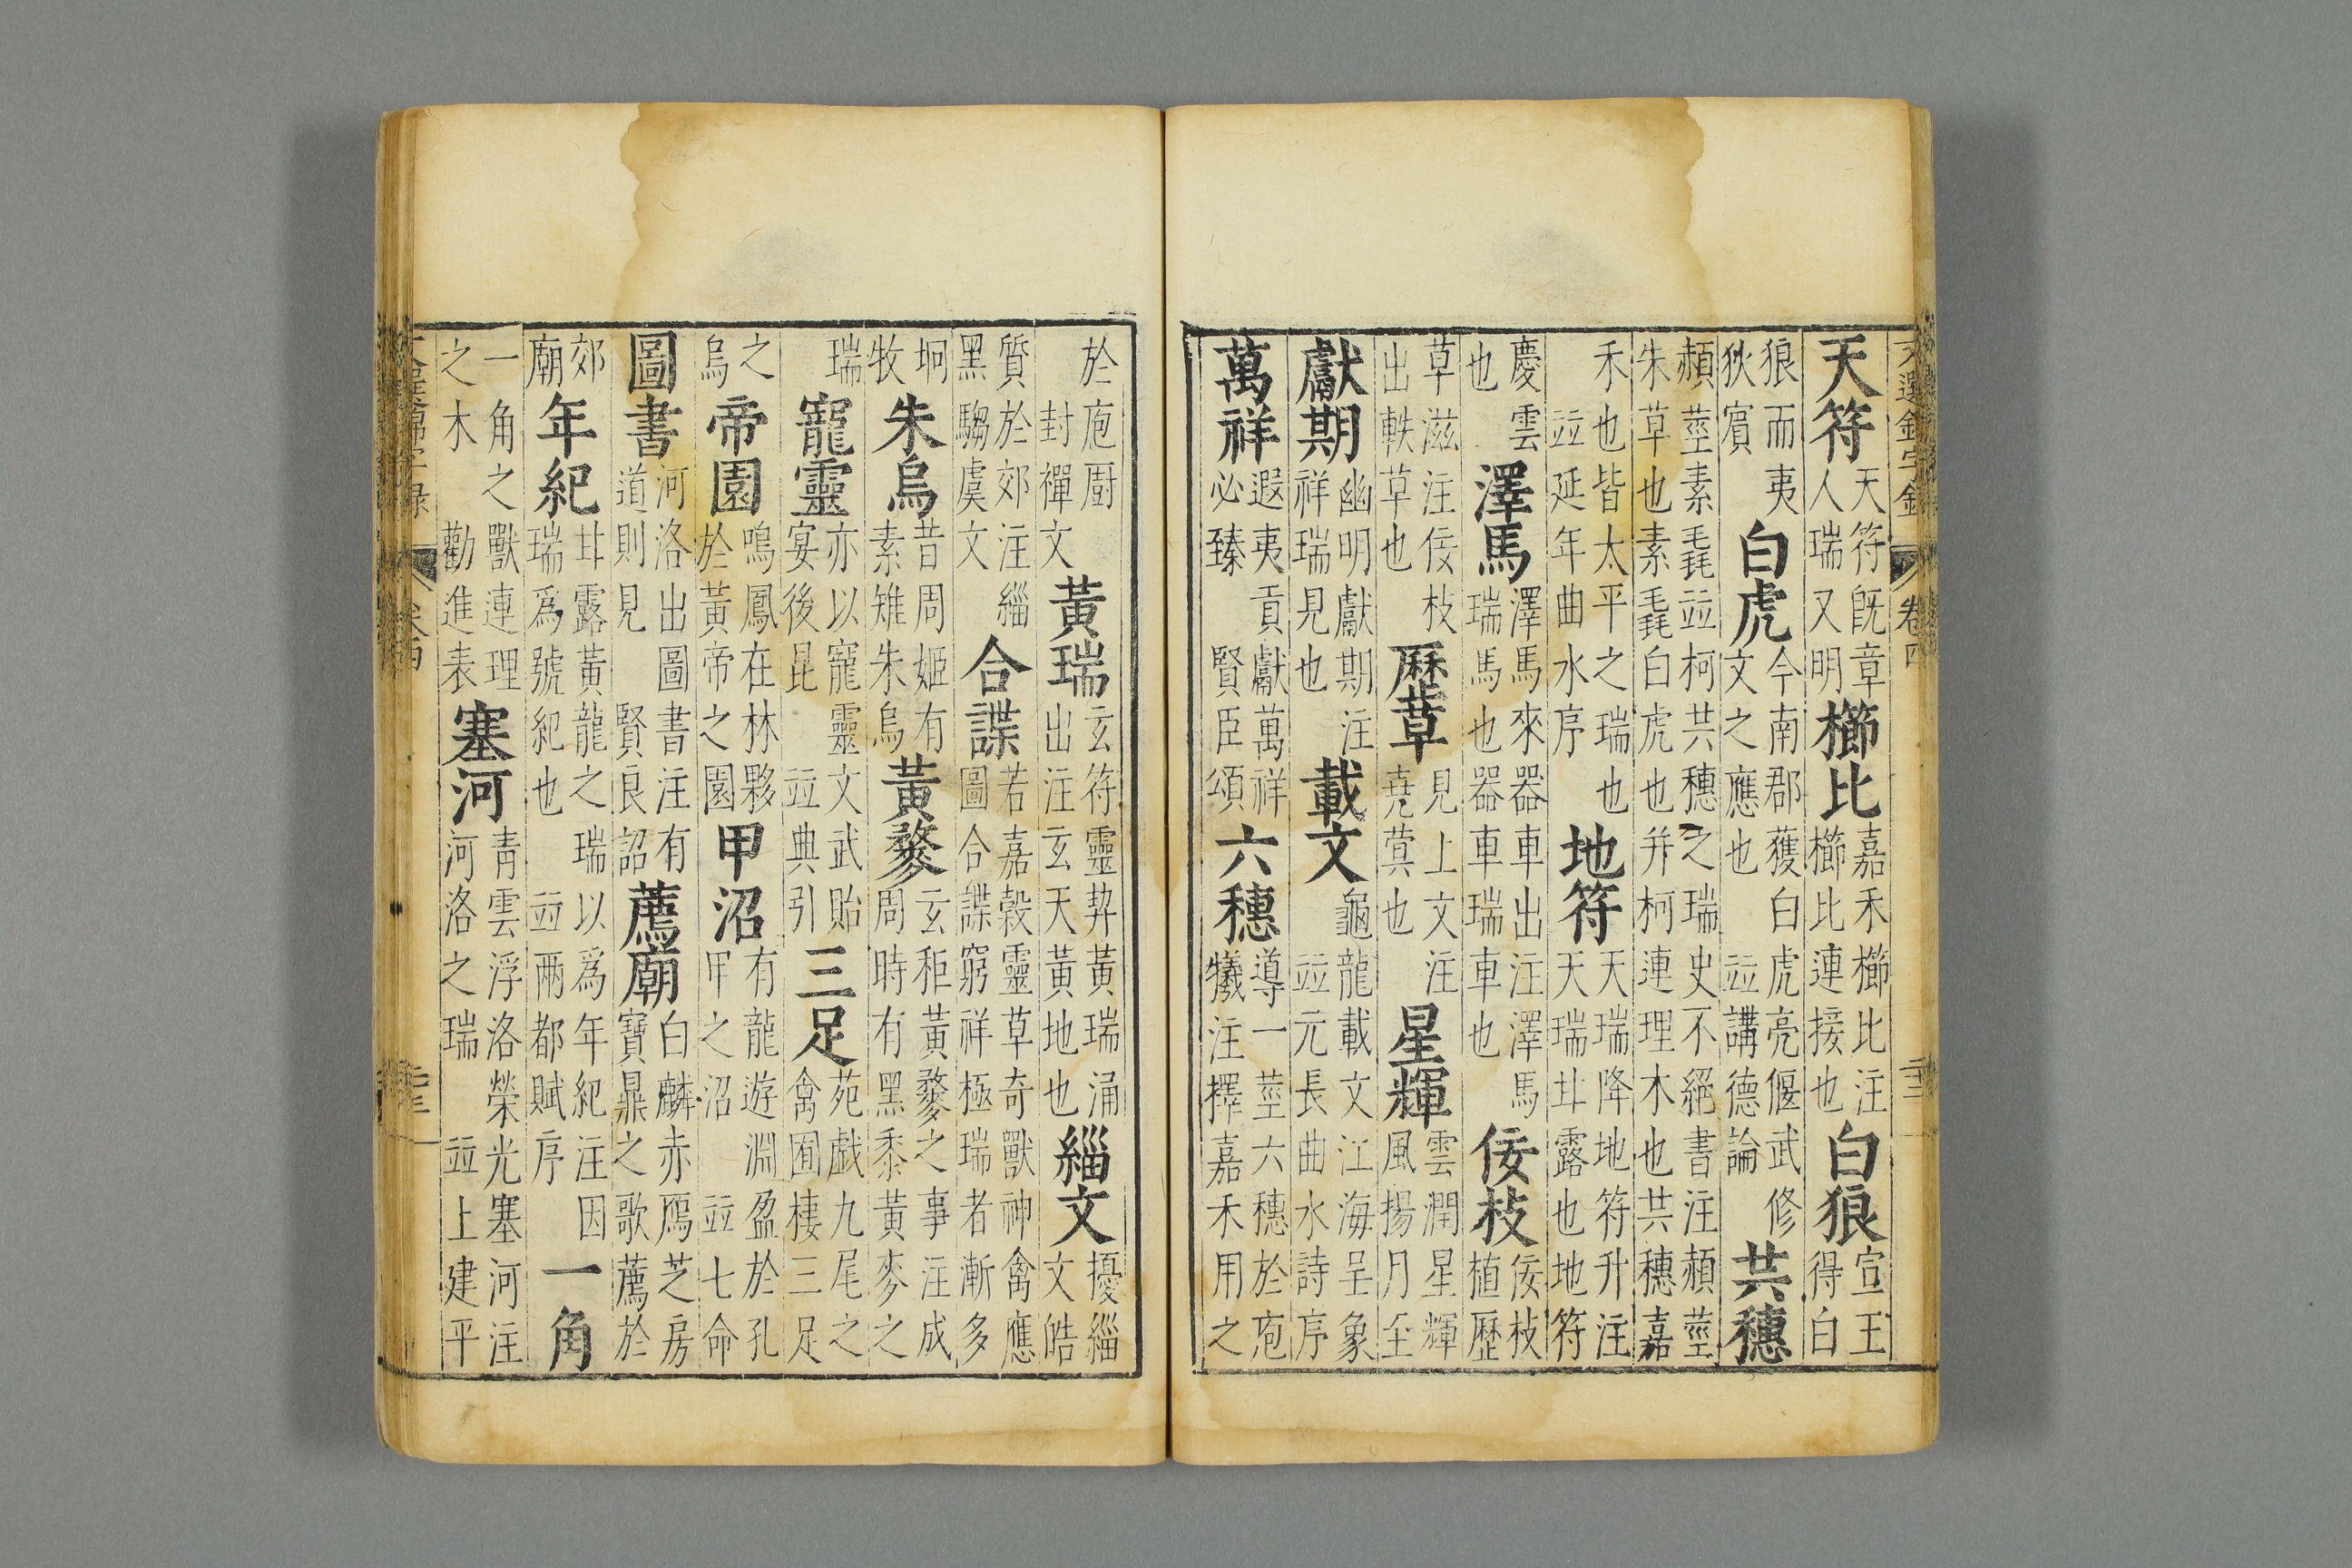 文選錦字錄 卷四
天符天符既章人瑞又明櫛比嘉禾櫛比注櫛比連接也白狼宣王得白
狼而夷狄賓白虎今南郡獲白虎亮偃武修文之應也並講德論共穗
赬莖素毳並柯共穗之瑞史不絕書注赬莖朱草也素毳白虎也并柯連理木也共穗嘉
禾也皆太平之瑞也並延年曲水序地符天瑞降地符升注天瑞甘露也地符
慶雲也澤馬澤馬來器車出注澤馬瑞馬也器車瑞車也佞枝佞枝植歷
草滋注佞枝出軼草也歷草見上文注堯蓂也星輝雲潤星輝風揚月至
獻期幽明獻期注祥瑞見也載文龜龍載文江海呈象並元長曲水詩序
萬祥遐夷貢獻萬祥必臻賢臣頌六穗導一莖六穗於庖犧注擇嘉禾用之
於庖廚封禪文黃瑞玄符靈契黃瑞涌出注玄天黃地也緇文擾緇文皓
質於郊注緇黑騶虞文合諜若嘉穀靈草奇獸神禽應圖合諜窮祥極瑞者漸多
坰牧朱烏昔周姬有素雉朱烏黃䵄玄秬黃䵄之事注成周時有黑黍黃麥之
瑞寵靈亦以寵靈文武貽宴後昆並典引三足苑戲九尾之禽囿棲三足
之烏帝園鳴鳳在林夥於黃帝之園甲沼有龍遊淵盈於孔甲之沼並七命
圖書河洛出圖書注有道則見賢良詔薦廟白麟赤鴈芝房寶鼎之歌薦於
郊廟年紀甘露黃龍之瑞以爲年紀注因瑞爲號紀也並兩都賦序一角
一角之獸連理之木勸進表塞河青雲浮洛榮光塞河注河洛之瑞並上建平